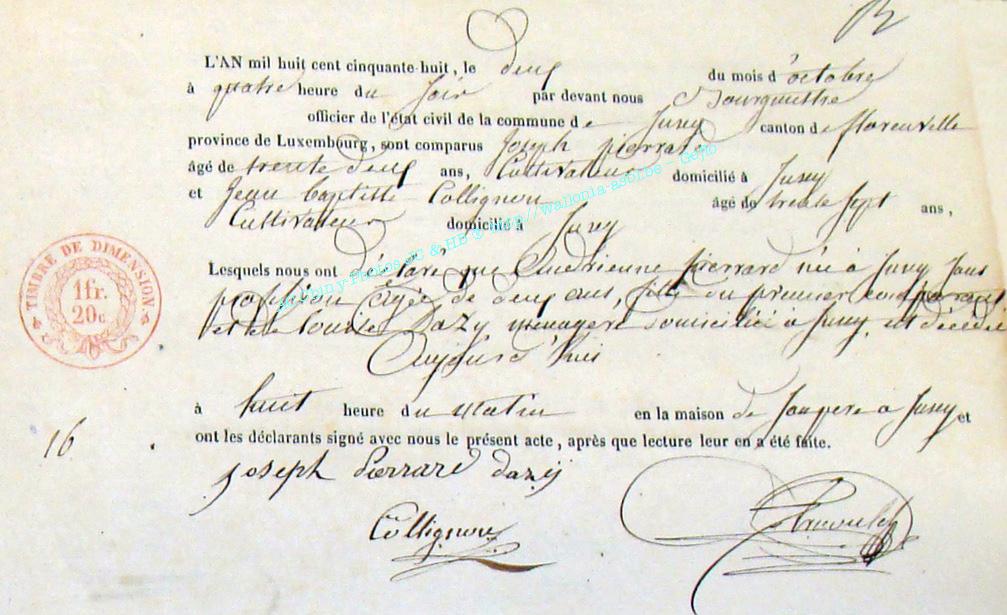 L'AN mil huit cent cinquante-huit, le deux du mois d'octobre
à quatre heure du soir par devant nous Bourgmestre
officier de l'état civil de la commune de Jusey canton de florenville
province de Luxembourg, sont comparus Joseph pierrard
âgé de trente deux ans, Cultivateur domicilié à Jusey
et Jean Baptiste Collignon âgé de trente sept ans,
Cultivateur domicilié à Jusey
Lesquels nous ont déclaré que pierrard née à Jusey Sans
profession agée de deux ans, fille du premier comparant
et de Louise Dazy menagere domicilié à Jusey, est décédée
Aujourd'hui
à huit heure du matin en la maison de Son pere a Jusey et
ont les déclarants signé avec nous le présent acte, après que lecture leur en a été faite.
TIMBRE DE DIMENSION
1 fr.
20 c.
16
Joseph Pierrard dazij
Collignon
wallonia-asbl.be - Geño